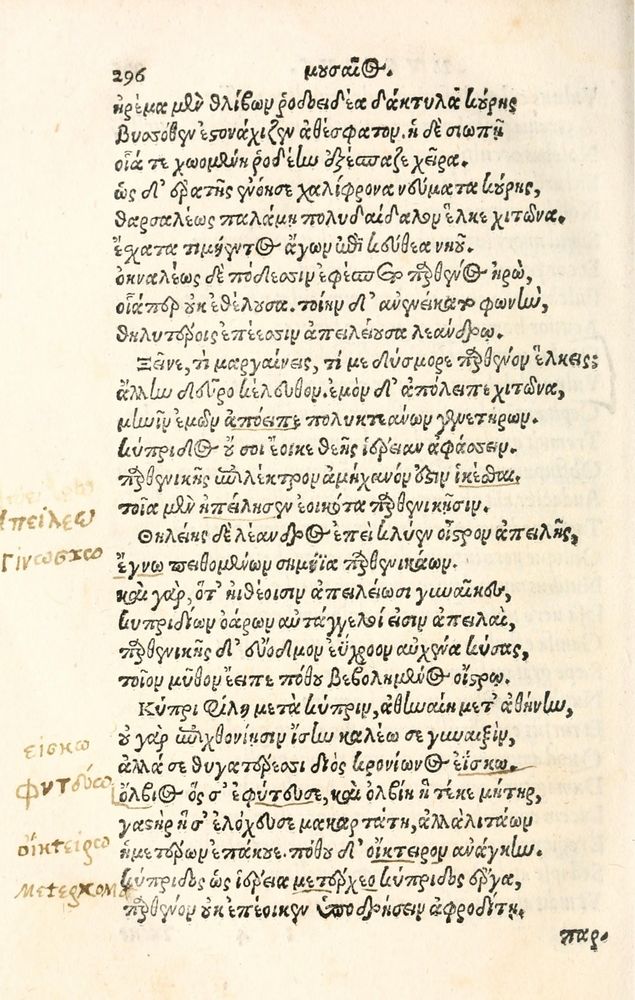 296 μουσαῖος.
ἠρέμα μὲν θλίβων ῥοδοειδέα δάκτυλα κούρης
βυσσόθεν ἐστονάχιζεν ἀθέσφατον. ἡ δὲ σιωπῇ
οἷά τε χωομένη ῥοδέην ἐξέσπασε χεῖρα.
ὡς δ' ἐρατῆς ἐνόησε χαλίφρονα νεύματα κούρης,
θαρσαλέως παλάμῃ πολυδαίδαλον ἕλκε χιτῶνα.
ἔσχατα τιμήεντος ἄγων ἐπὶ κεύθεα νηοῦ.
ὀκναλέως δὲ πόδεσσιν ἐφέσπετο παρθένος ἡρώ,
οἷάπερ οὐκ ἐθέλουσα. τοίην δ' ἀνενείκατο φωνὴν,
θηλυτέροις ἐπέεσσιν ἀπειλείουσα λεάνδρῳ.
Ξεῖνε, τί μαργαίνεις, τί με δύσμορε παρθένον ἕλκεις;
ἄλλην δεῦρο κέλευθον. ἐμὸν δ' ἀπόλειπε χιτῶνα,
μῆνιν ἐμῶν ἀπόειπε πολυκτεάνων γενετήρων.
κύπριδος οὔ σοι ἔοικε θεῆς ἱέρειαν ἀφάσσειν.
παρθενικῆς ἐπὶ λέκτρον ἀμήχανόν ἐστιν ἱκέσθαι.
τοῖα μὲν ἠπείλησεν ἐοικότα παρθενικῇσιν.
Θηλείης δὲ λέανδρος ἐπεὶ κλύεν οἶστρον ἀπειλῆς,
ἔγνω πειθομένων σημήϊα παρθενικάων.
καὶ γὰρ, ὅτ' ἠϊθέοισιν ἀπειλέωσι γυναῖκες,
κυπριδίων ὀάρων αὐτάγγελοί εἰσιν ἀπειλαὶ,
παρθενικῆς δ' εὔοδμον εὔχροον αὐχένα κύσας,
τοῖον μῦθον ἔειπε πόθου βεβολημένος οἴστρῳ.
Κύπρι φίλη μετὰ κύπριν, ἀθηναίη μετ' ἀθήνην,
οὐ γὰρ ἐπιχθονίῃσιν ἴσην καλέω σε γυναιξὶν,
ἀλλά σε θυγατέρεσσι διὸς κρονίωνος ἐΐσκω.
ὄλβιος ὅς σ' ἐφύτευσε, καὶ ὀλβίη ἣ τέκε μήτηρ,
γαστὴρ ἥ σ' ἐλόχευσε μακαρτάτη, ἀλλὰ λιτάων
ἡμετέρων ἐπάκουε. πόθου δ' οἴκτειρον ἀνάγκην.
κύπριδος ὡς ἱέρεια μετέρχεο κύπριδος ἔργα,
παρθένον οὐκ ἐπέοικεν ὑποδρήσσειν ἀφροδίτῃ.
παρ.
ἀπειλέω
γινώσκω
εἰσκω
φυτεύω
οἰκτείρω
μετέρχομαι